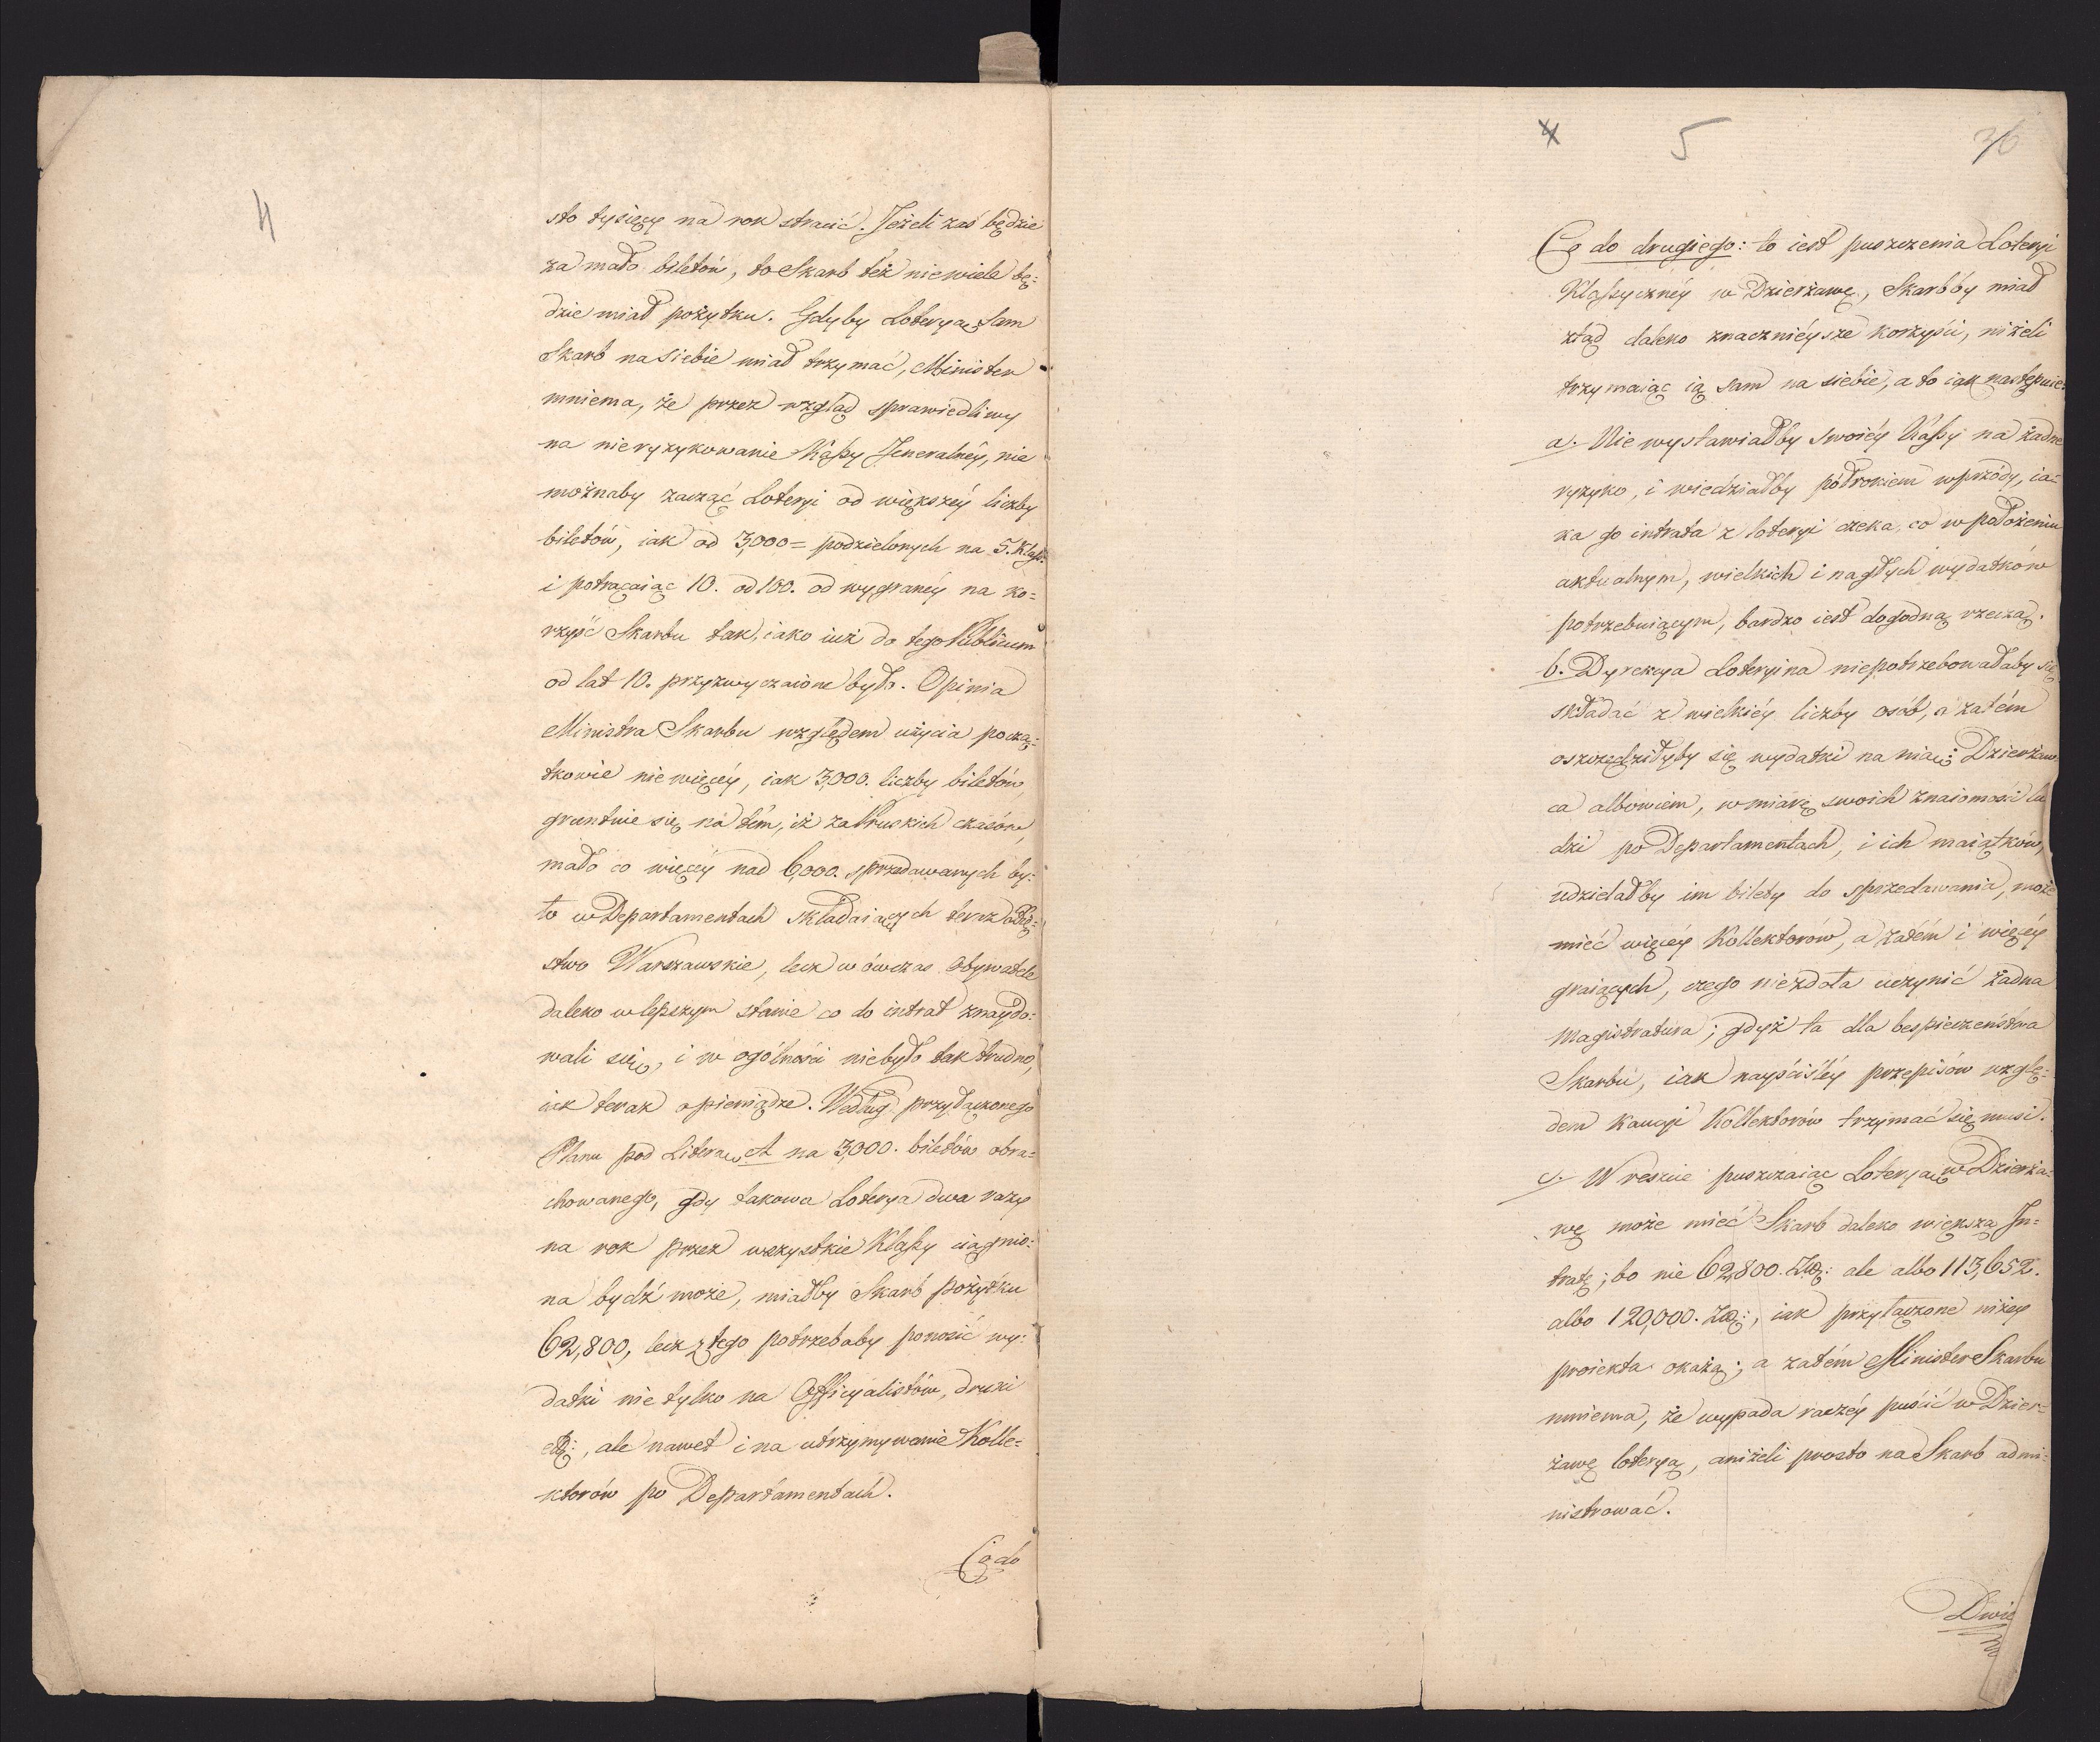 4
sto tysięcy na rok stracić. Jeżeli zaś będzie
za mało biletów, to Skarb też niewiele bę:
dzie miał pożytku. Gdyby Loteryą Sam
Skarb na siebie miał trzymać, Minister
mniema, że przez wzgląd sprawiedliwy
na nieryzykowanie Kaſsy Jeneralnéy, nie
możnaby zacząć Loteryi od większéy liczby
biletów, iak od 3,000= podzielonych na 5. Klaſs:
i potrącaiąc 10. od 100. od wygranéy na ko=
rzyść Skarbu tak, iako iuż do tego Publicum
od lat 10. przyzwyczaione było. Opinia
Ministra Skarbu względem użycia począ:
tkowie nie więcéy, iak 3,000. liczby biletów,
gruntuie się na tém, iż za Pruskich czasów,
mało co więcéy nad 6,000. sprzedawanych by:
ło w Departamentach składaiących teraz
stwo Warszawskie, lecz w ówczas Obywatele
daleko w lepszym stanie co do intrat znaydo:
wali się, i w ogólności niebyło tak trudno,
iak teraz o pieniądze. Według przyłączonego
Planu pod Literą A na 3,000. biletów obra=
chowanego, gdy takowa Loterya dwa razy
na rok przez wszystkie Klaſsy ciągnio:
na bydź może, miałby Skarb pożytku
62,800, lecz z tego potrzebaby ponosić wy:
datki nie tylko na Officyalistów, druki
etc:, ale nawet i na utrzymywanie Kolle=
ktorów po Departamentach.
Co do
4 5 36
Co do drugiego: to iest puszczenia Loteryi
Klaſsycznéy w Dzierżawę, Skarbby miał
ztąd daleko znacznieysze korzyści, niżeli
trzymaiąc ią sam na siebie, a to iak następuie:
a. Nie wystawiałby swoiéy Kaſsy na żadne
ryzyko, i wiedziałby półrokiem wprzódy, ia=
ka go intrata z loteryi czeka, co w położeniu
aktualnym, wielkich i nagłych wydatków
potrzebuiącym, bardzo iest dogodną rzeczą.
b. Dyrekcya Loteryina niepotrzebowałaby się
składać z wielkiéy liczby osób, a zatém
oszczędziłyby się wydatki na nią: Dzierżaw:
ca albowiem, w miarę swoich znaiomości lu
dzi po Departamentach, i ich maiątków,
udzielałby im bilety do sprzedawania, może
mieć więcéy Kollektorów, a zatém i więcéy
graiących, czego niezdoła uczynić żadna
Magistratura; gdyż ta dla bespieczeństwa
Skarbu, iak nayściśléy przepisów wzglę:
dem Kaucyi Kollektorów trzymać się musi.
c. W reszcie puszczaiąc Loteryą w Dzierża=
wę może mieć Skarb daleko większą In=
tratę; bo nie 62,800. Złą: ale albo 113,652.
albo 120,000. Złą:, iak przyłączone niżéy
proiekta okażą; a zatém Minister Skarbu
mniema, że wypada raczéy puścić w Dzier=
żawę loteryą, aniżeli prosto na Skarb admi=
nistrować.
Dwie